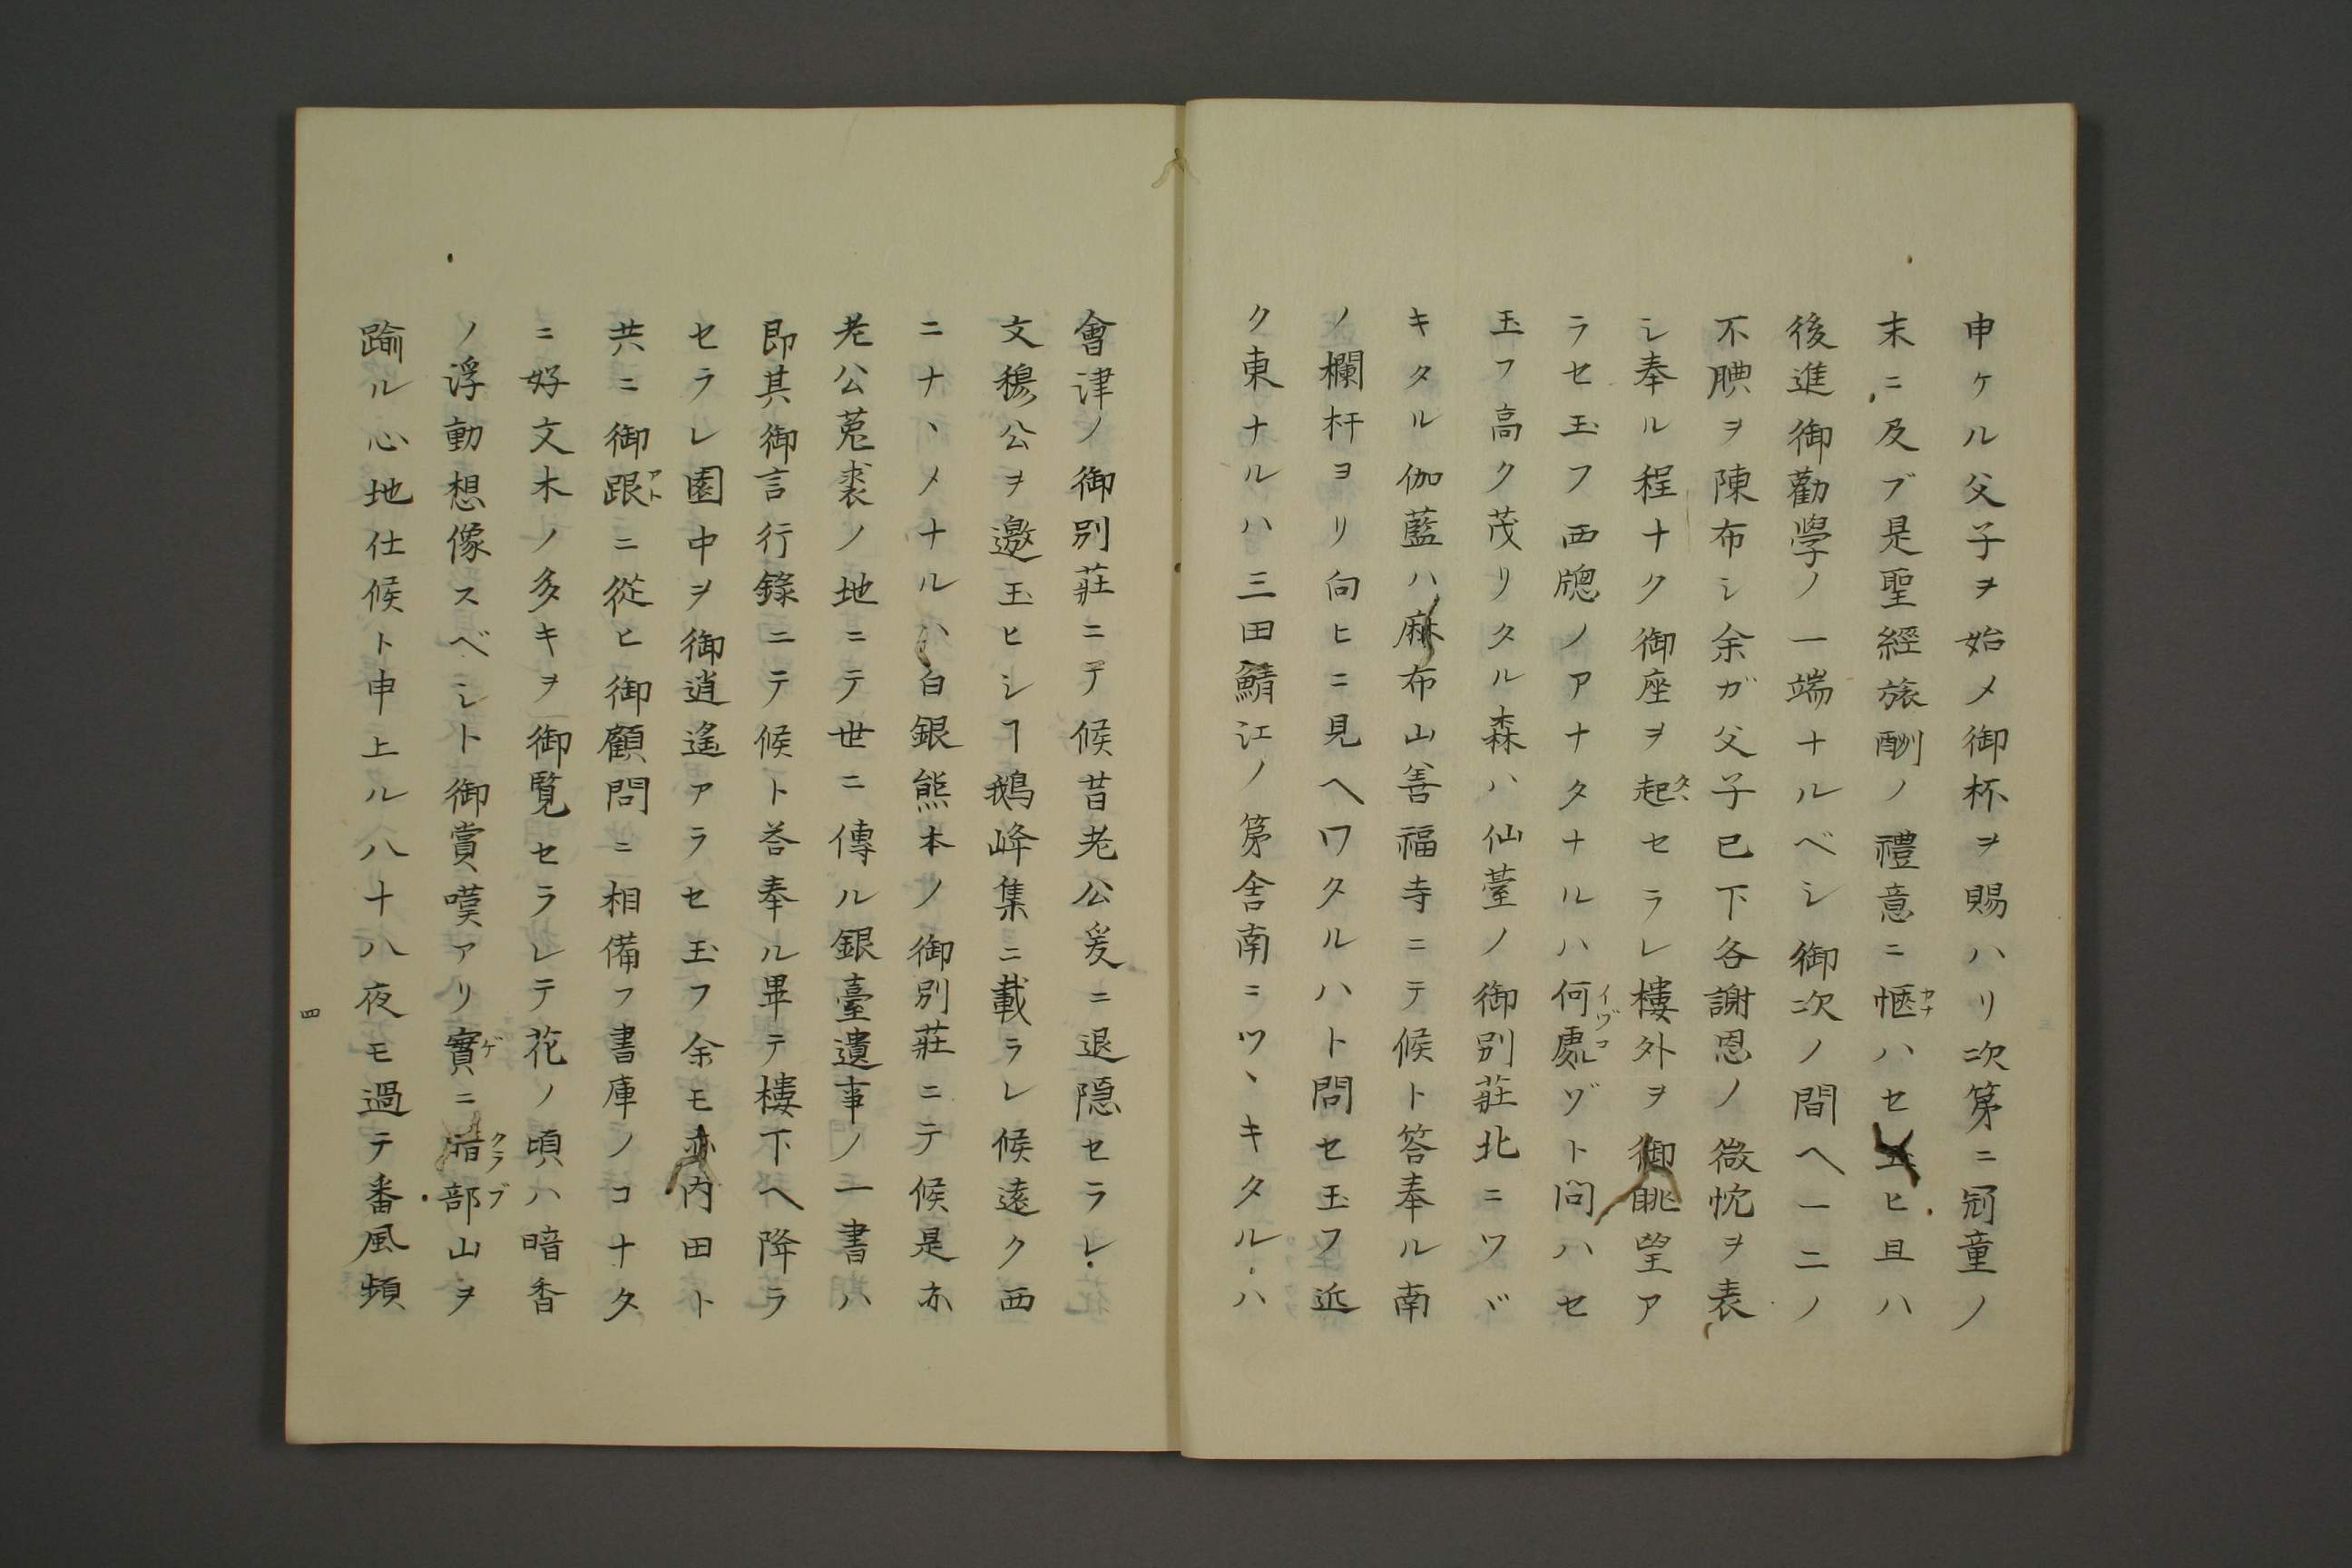 申ケル父子ヲ始メ御杯ヲ賜ハリ次第ニ冠童ノ
末ニ及ブ是聖經旅酬ノ禮意ニ愜ハセ玉ヒ且ハ
後進御勸學ノ一端ナルベシ御次ノ間ヘ一二ノ
不腆ヲ陳布シ余ガ父子已下各謝恩ノ微忱ヲ表
シ奉ル程ナク御座ヲ起セラレ樓外ヲ御眺望ア
ラセ玉フ西牕ノアナタナルハ何處ゾト問ハセ
玉フ高ク茂リタル森ハ仙薹ノ御別莊北ニツヾ
キタル伽藍ハ麻布山善福寺ニテ候ト答奉ル南
ノ欄杆ヨリ向ヒニ見ヘワタルハト問セ玉フ近
ク東ナルハ三田鯖江ノ第舎南ニツヽキタルハ
會津ノ御別莊ニテ候昔老公爰ニ退隠セラレ
文穆公ヲ邀玉ヒシヿ鵝峰集ニ載ラレ候遠ク西
ニナヽメナルハ白銀熊本ノ御別莊ニテ候是亦
老公菟裘ノ地ニテ世ニ傳ル銀臺遺事ノ一書ハ
即其御言行錄ニテ候ト荅奉ル畢テ樓下ヘ降ラ
セラレ園中ヲ御逍遙アラセ玉フ余モ亦内田ト
共ニ御跟ニ從ヒ御顧問ニ相備フ書庫ノコナタ
ニ好文木ノ多キヲ御覧セラレテ花ノ頃ハ暗香
ノ浮動想像スベシト御賞嘆アリ實ニ暗部山ヲ
踰ル心地仕候ト申上ル八十八夜モ過テ番風頻
四